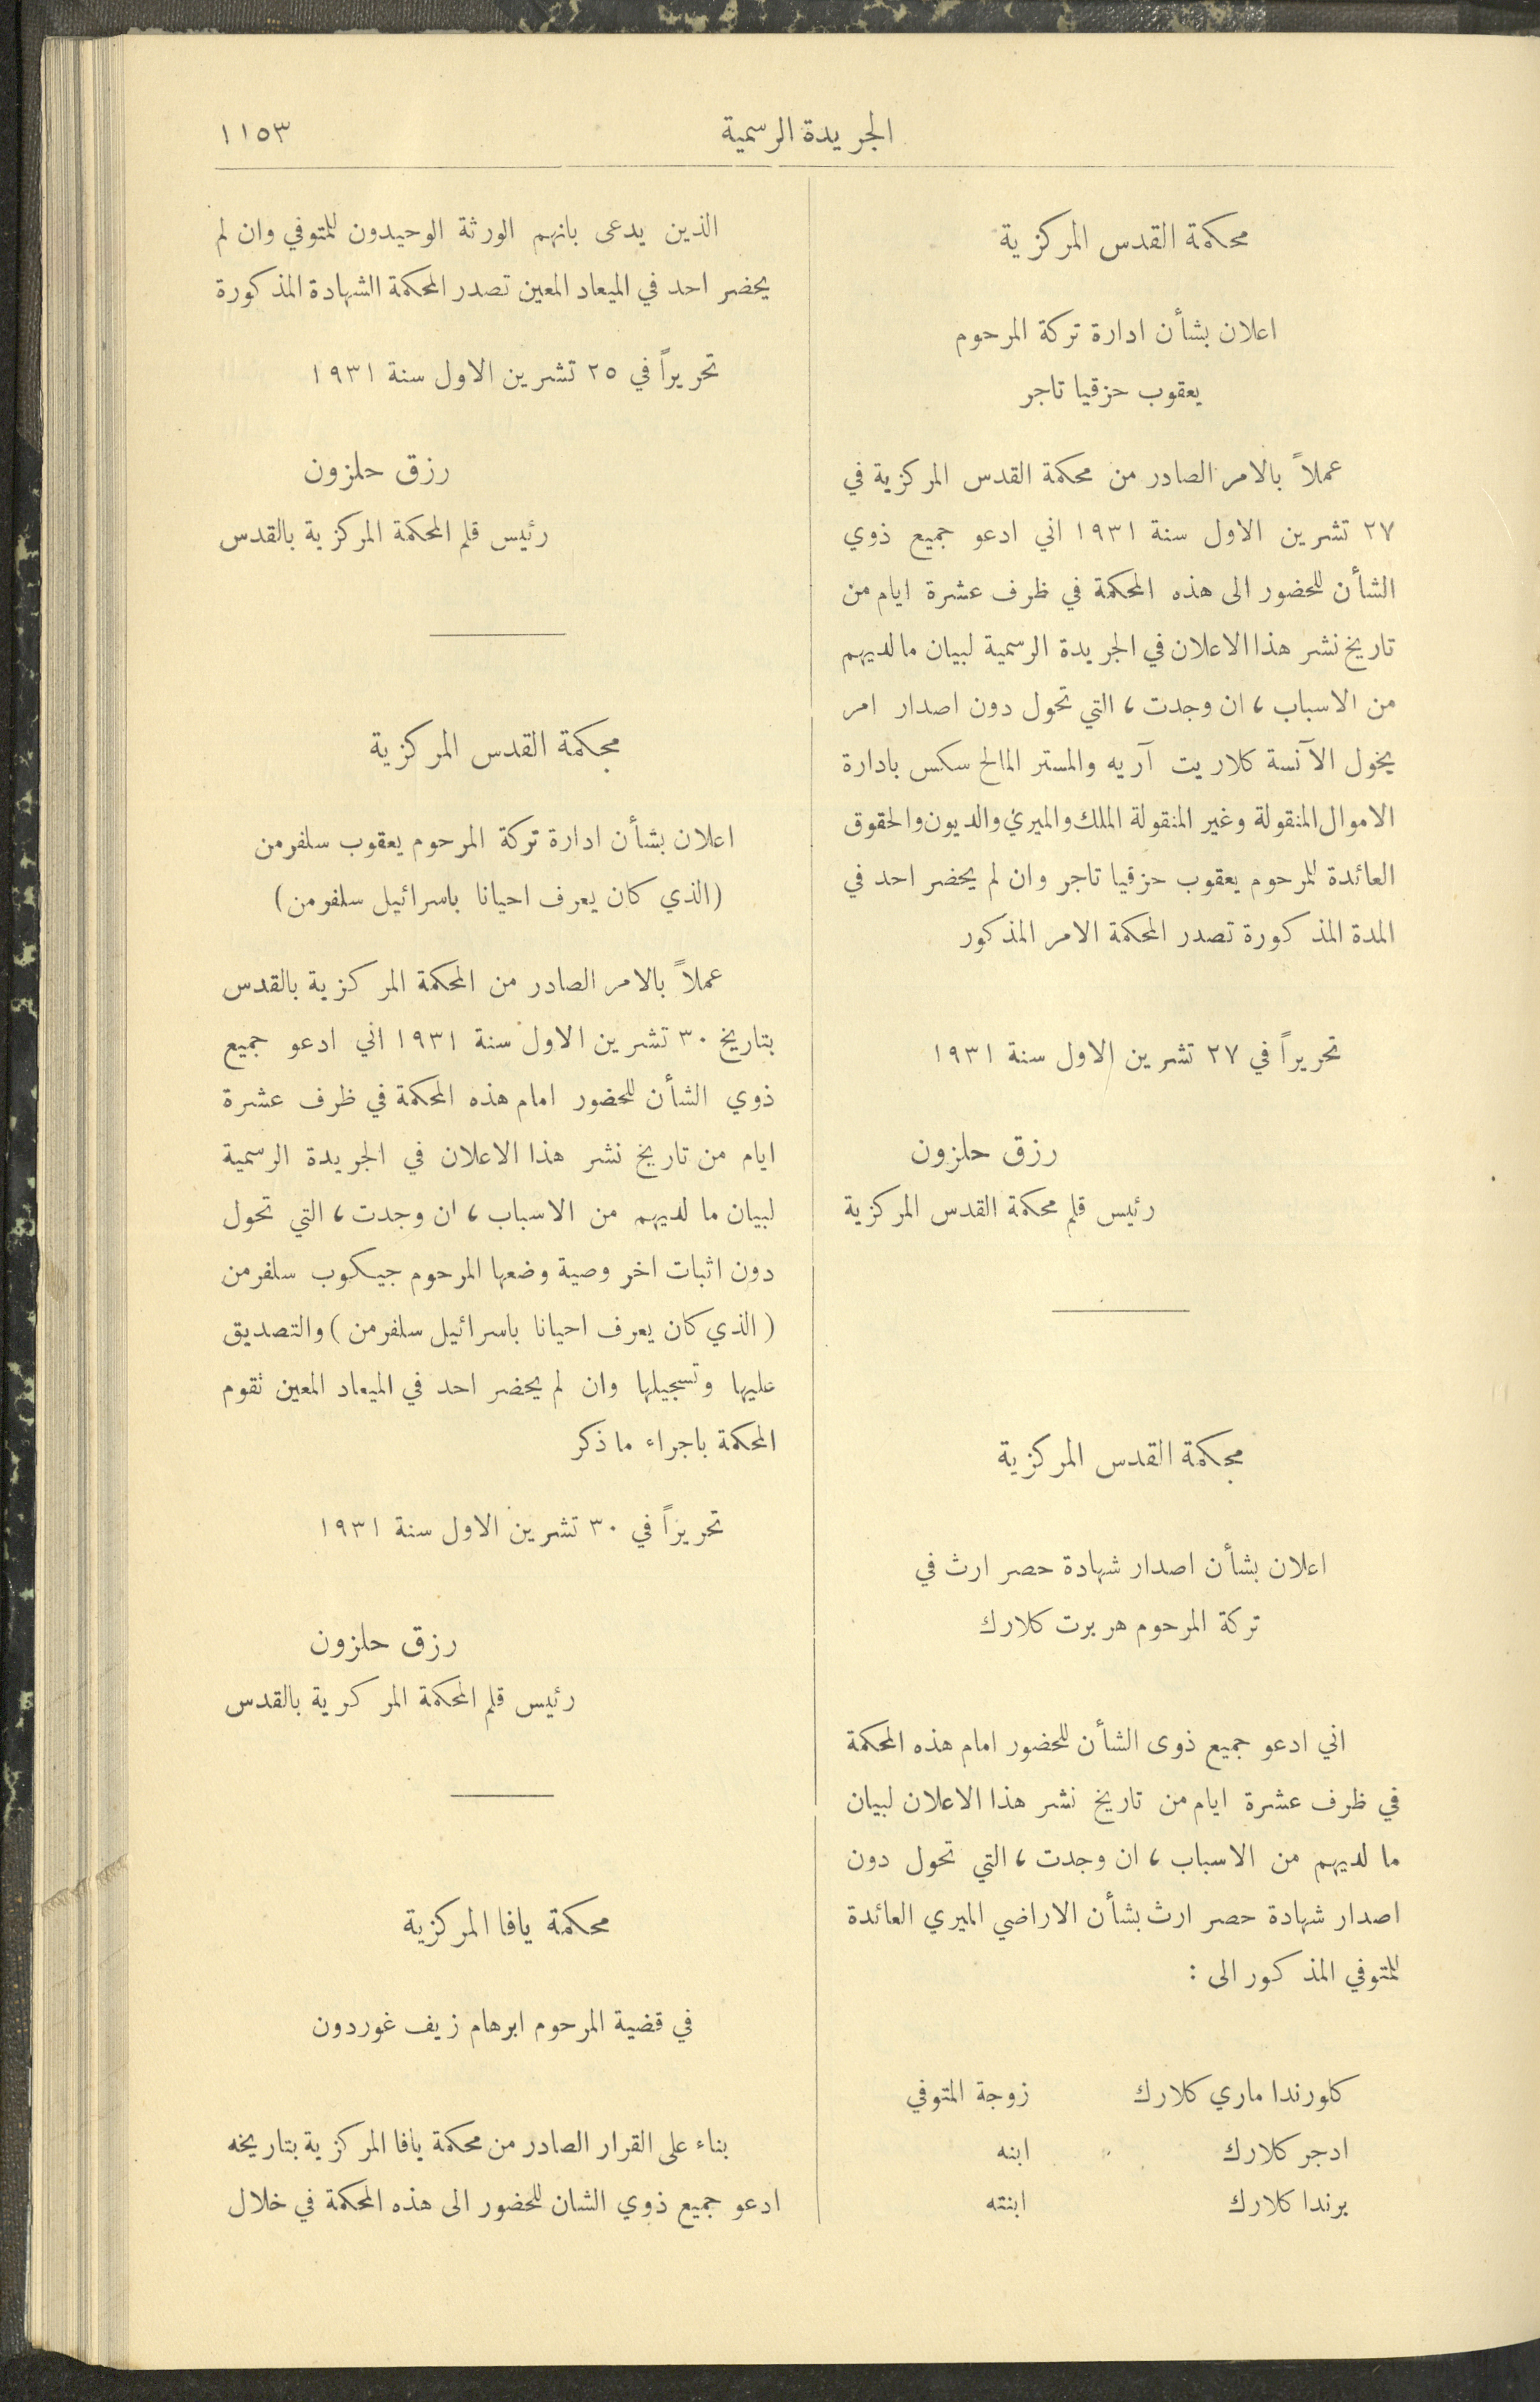 الجريدة الرسمية
١١٥٣
محكمة القدس المركزية
اعلان بشأن ادارة تركة المرحوم
يعقوب حزقيا تاجر
عملاً بالامر الصادر من محكمة القدس المركزية في
٢٧ تشرين الاول سنة ١٩٣١ اني ادعو جميع ذوي
الشأن للحضور الى هذه المحكمة في ظرف عشرة ايام من
تاريخ نشر هذا الاعلان في الجريدة الرسمية لبيان ما لديهم
من الاسباب، ان وجدت، التي تحول دون اصدار امر
يخول الآنسة كلاريت آريه والمستر المالح سكس بادارة
الاموال المنقولة وغير المنقولة الملك والميري والديون والحقوق
العائدة للمرحوم يعقوب حزقيا تاجر وان لم يحضر احد في
المدة المذكورة تصدر المحكمة الامر المذكور
تحريراً في ٢٧ تشرين الاول سنة ١٩٣١
رزق حلزون
رئيس قلم محكمة القدس المركزية
محكمة القدس المركزية
اعلان بشأن اصدار شهادة حصر ارث في
تركة المرحوم هربرت كلارك
اني ادعو جميع ذوى الشأن للحضور امام هذه المحكمة
في ظرف عشرة ايام من تاريخ نشر هذا الاعلان لبيان
ما لديهم من الاسباب، ان وجدت، التي تحول دون
اصدار شهادة حصر ارث بشأن الاراضي الميري العائدة
للمتوفي المذكور الى :
كلورندا ماري كلارك زوجة المتوفي
ادجر كلارك ابنه
برندا كلارك ابنته
الذين يدعى بانهم الورثة الوحيدون للمتوفي وان لم
يحضر احد في الميعاد المعين تصدر المحكمة الشهادة المذكورة
تحريراً في ٢٥ تشرين الاول سنة ١٩٣١
رزق حلزون
رئيس قلم المحكمة المركزية بالقدس
محكمة القدس المركزية
اعلان بشأن ادارة تركة المرحوم يعقوب سلفرمن
(الذي كان يعرف احيانا باسرائيل سلفرمن)
عملاً بالامر الصادر من المحكمة المركزية بالقدس
بتاريخ ٣٠ تشرين الاول سنة ١٩٣١ اني ادعو جميع
ذوي الشأن للحضور امام هذه المحكمة في ظرف عشرة
ايام من تاريخ نشر هذا الاعلان في الجريدة الرسمية
لبيان ما لديهم من الاسباب، ان وجدت، التي تحول
دون اثبات اخر وصية وضعها المرحوم جيكوب سلفرمن
(الذي كان يعرف احيانا باسرائيل سلفرمن) والتصديق
عليها وتسجيلها وان لم يحضر احد في الميعاد المعين تقوم
المحكمة باجراء ما ذكر
تحريراً في ٣٠ تشرين الاول سنة ١٩٣١
رزق حلزون
رئيس قلم المحكمة المركرية بالقدس
محكمة يافا المركزية
في قضية المرحوم ابرهام زيف غوردون
بناء على القرار الصادر من محكمة يافا المركزية بتاريخه
ادعو جميع ذوي الشان للحضور الى هذه المحكمة في خلال